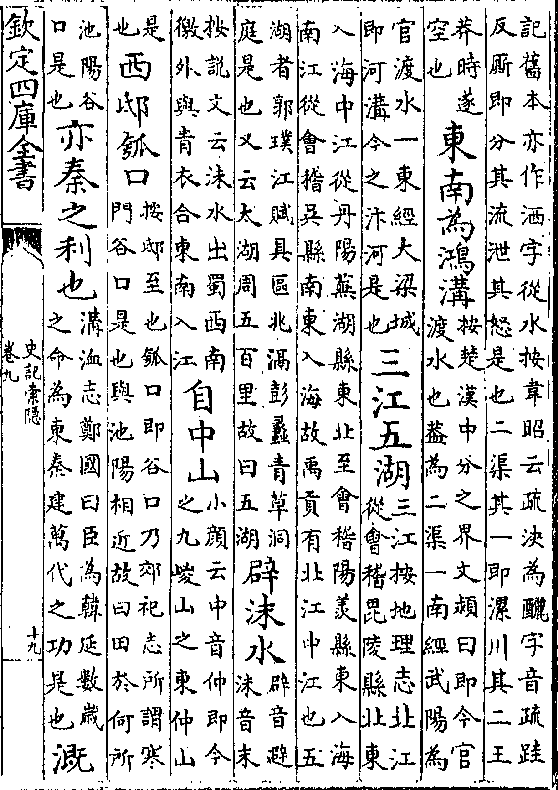 記舊本亦作洒字從水按韋昭云疏決為釃字音疏跬
反厮即分其流泄其怒是也二渠其一即漯川其二王
莽時遂
空也
東南為鴻溝
按楚漢中分之界文穎曰即今官
渡水也葢為二渠一南經武陽為
官渡水一東經大梁城
即河溝今之汴河是也
三江五湖
三江按地理志北江
從會稽毘陵縣北東
入海中江從丹陽蕪湖縣東北至會稽陽羨縣東入海
南江從會稽吳縣南東入海故禹貢有北江中江也五
湖者郭璞江賦具區兆滆彭蠡青草洞
庭是也又云太湖周五百里故曰五湖
辟沫水
辟音避
沫音末
按說文云沫水出蜀西南
徼外與青衣合東南入江
自中山
小顔云中音仲即今
之九嵕山之東仲山
是
也
西邸瓠口
按邸至也瓠口即谷口乃郊祀志所謂寒
門谷口是也與池陽相近故曰田於何所
池陽谷
口是也
亦秦之利也
溝洫志鄭國曰臣為韓延數歲
之命為東秦建萬代之功是也
溉
欽定四庫全書
史記索隱
卷九
十九